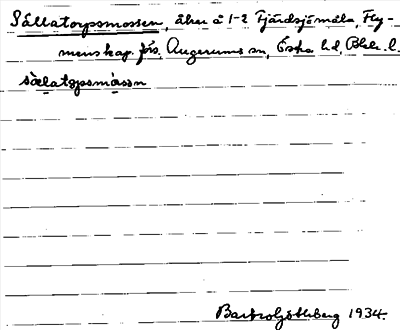 Sällatorpsmossen, åker å 1-2 Fjärdsjömåla, Fly-
menskap. förs. Augerums sn, Östra hd Blek. l.
sälatɔrpsmåsn
1934.